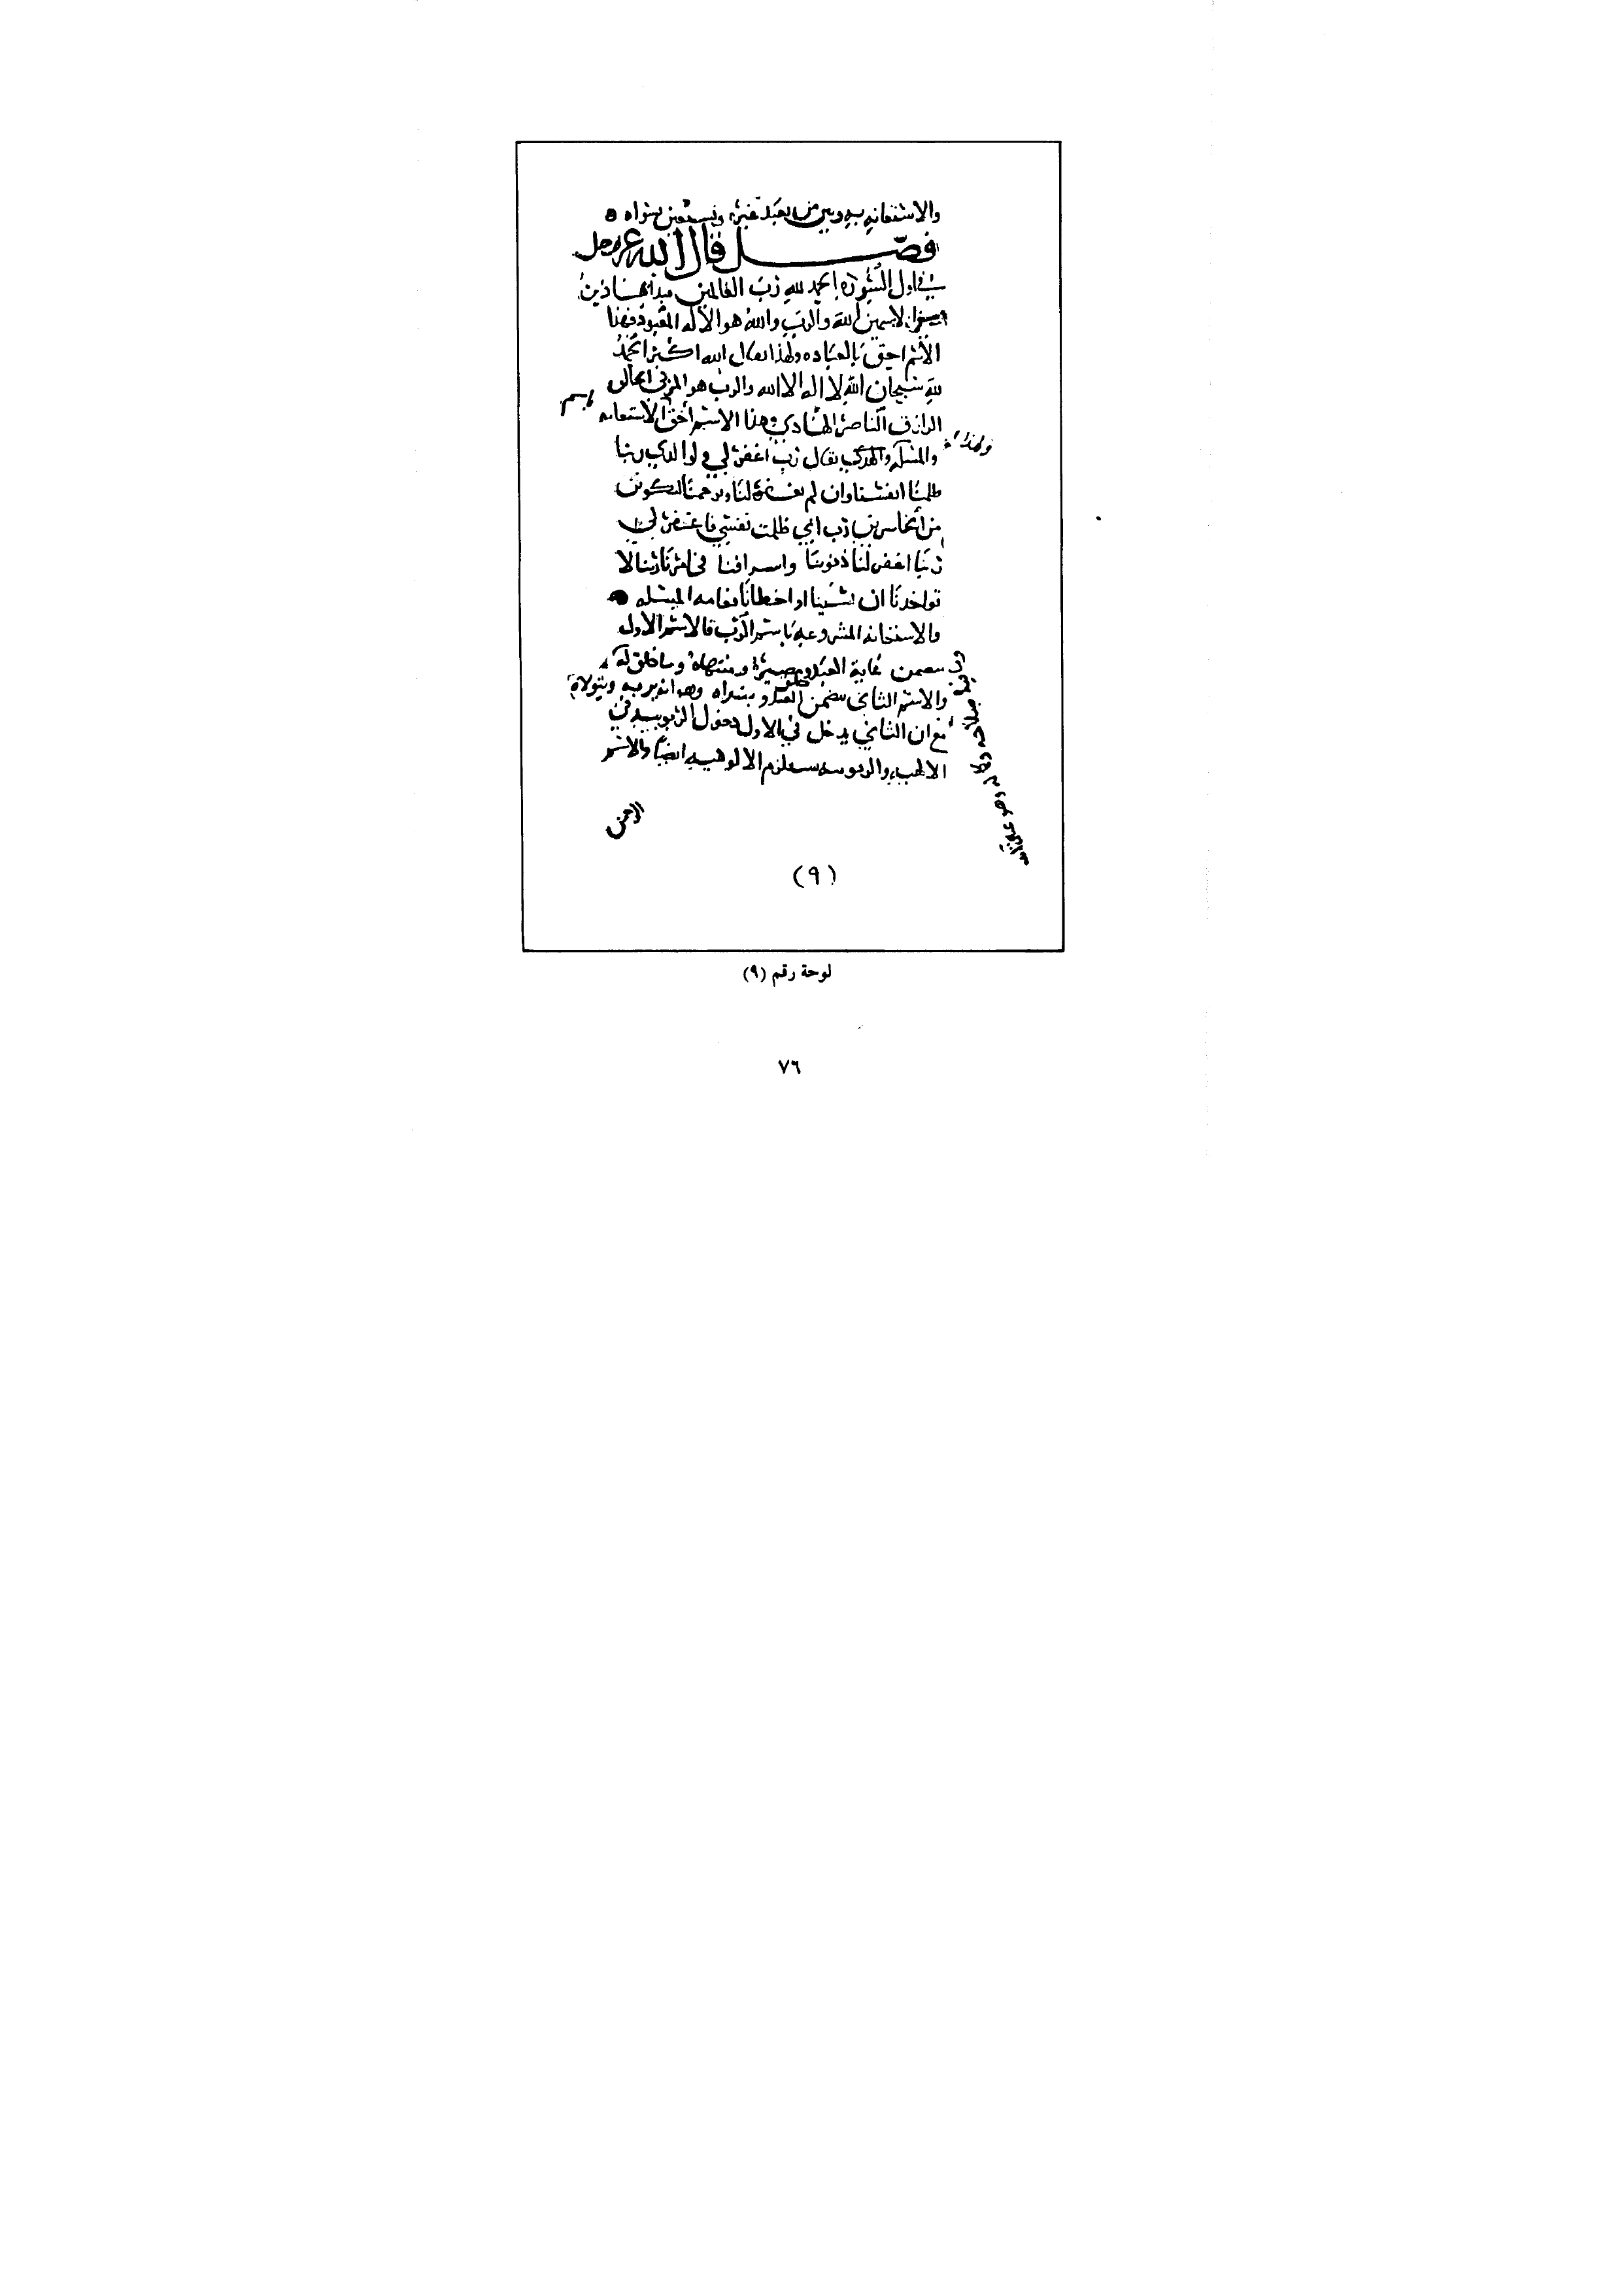 والاستعانه به وبين من يعبد غيره ويستعين بسواه
فصل قال الله عز وجل
في اول السوره الحمد لله رب العالمين فبدا بهاذين
الاسمين الله والرب والله هو الاله المعبود فهذا
الاسم احق بالعباده ولهذا يقال الله اكبر الحمد
لله سبحان الله لا اله الا الله والرب هو المربي الخالق
الرازق الناصر الهادي وهذا الاسم احق الاستعانه
باسم
والمسله ولهذا يقال رب اغفر لي ولوالدي ربنا
ظلمنا انفسنا وان لم تغفر لنا وترحمنا لنكونن
من الخاسرين رب اني ظلمت نفسي فاغفر لي
ربنا اغفر لنا ذنوبنا واسرافنا في امرنا ربنا لا
تواخذنا ان نسينا او اخطانا فعامه المسله
والاستعانه المشروعه باسم الرب فالاسم الاول
يتضمن غاية العبد ومصيره ومنتهاه وما خلق له
والاسم الثاني يتضمن خلق العبد ومبتداه وهو انه يربه ويتولاه
مع ان الثاني يدخل في الاول دخول الربوبيه في
الالهيه والربوبيه تستلزم الالوهيه ايضا والاسم
الرحمن
(٩)
لوحة رقم (٩)
٧٦